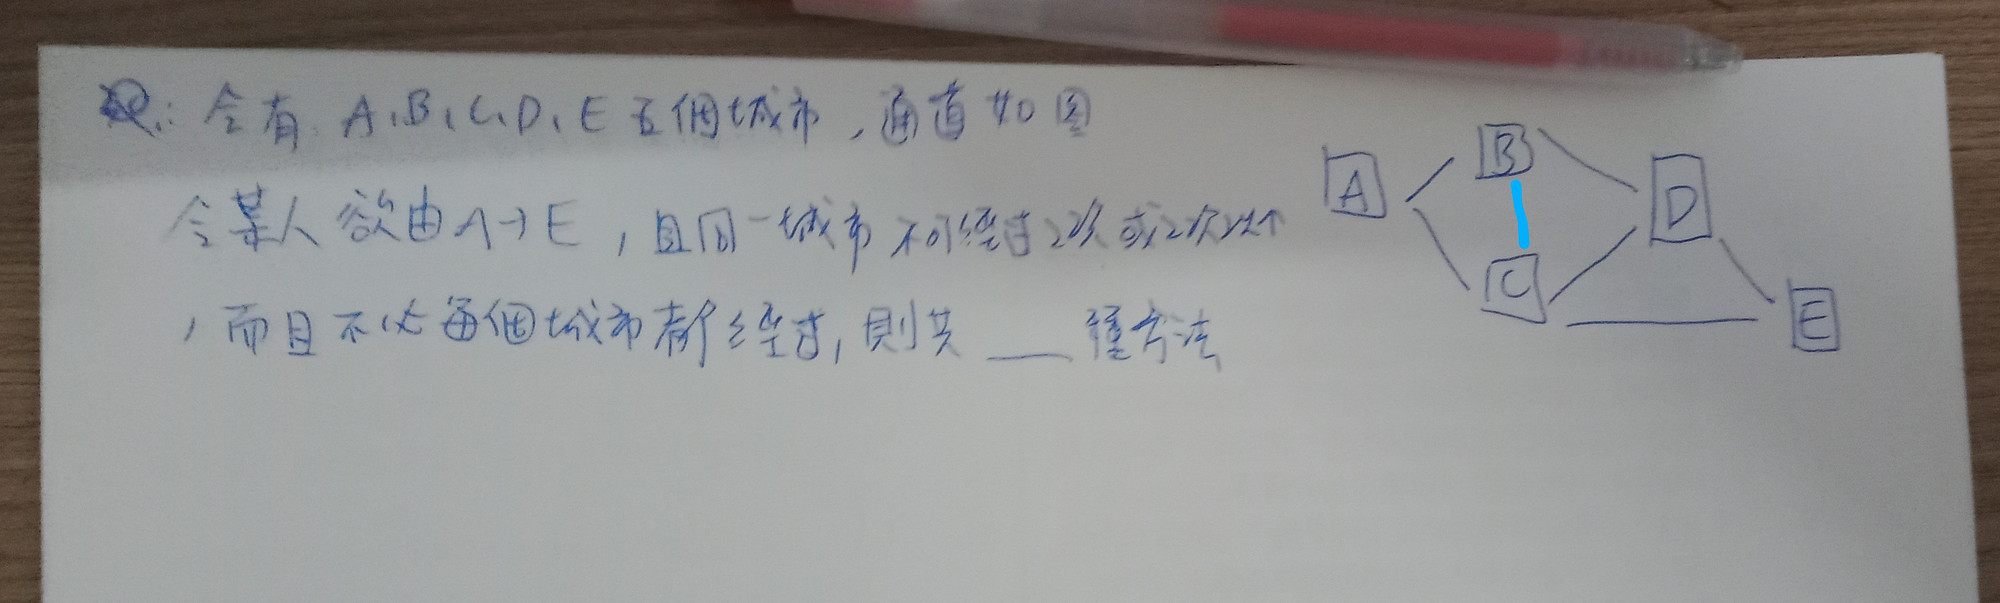 Q: 今有 A、B、C、D、E 五個城市，通道如圖
今某人欲由A→E，且同一城市不可經过2次或2次以上
，而且不必每個城市都經过，則共 ___ 種方法
A
B
C
D
E